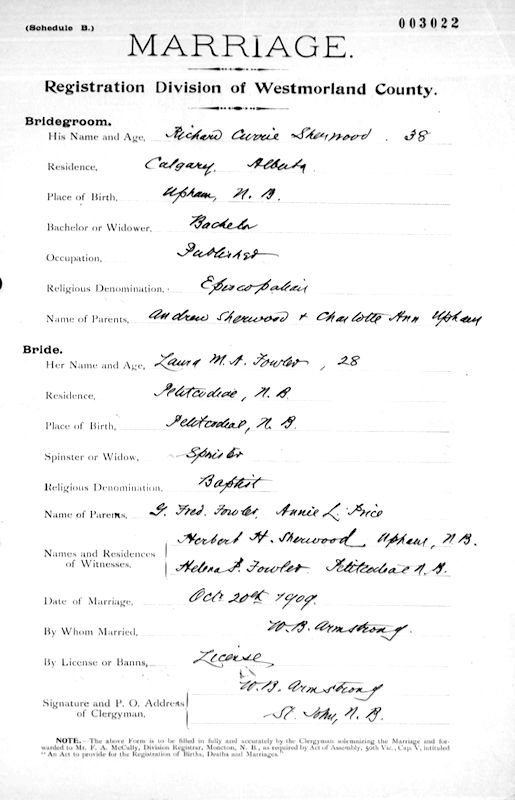 (Schedule B.)
003022
MARRIAGE.
Registration Division of Westmorland County.
Bridegroom.
His Name and Age, Richard Currie Sherwood . 38
Residence, Calgary, Alberta
Place of Birth, Upham, N. B.
Bachelor or Widower, Bachelor
Occupation, Publisher
Religious Denomination, Episcopalian
Name of Parents, Andrew Sherwood + Charlotte Ann Upham
Bride.
Her Name and Age, Laura M. A. Fowler , 28
Residence, Petitcodiac, N. B.
Place of Birth, Petitcodiac, N. B.
Spinster or Widow, Spinster
Religious Denomination, Baptist
Name of Parents, G. Fred. Fowler, Annie L. Price
Names and Residences of Witnesses, Herbert H. Sherwood, Upham, N.B.
Helena F. Fowler Petitcodiac N. B.
Date of Marriage, Oct. 20th 1909.
By Whom Married, W. B. Armstrong.
By License or Banns, License
Signature and P. O. Address of Clergyman. W. B. Armstrong
St. John, N. B.
NOTE.—The above Form is to be filled in fully and accurately by the Clergyman solemnizing the Marriage and for-
warded to Mr. F. A. McCully, Division Registrar, Moncton, N. B., as required by Act of Assembly, 50th Vic., Cap. V, intituled
"An Act to provide for the Registration of Births, Deaths and Marriages."